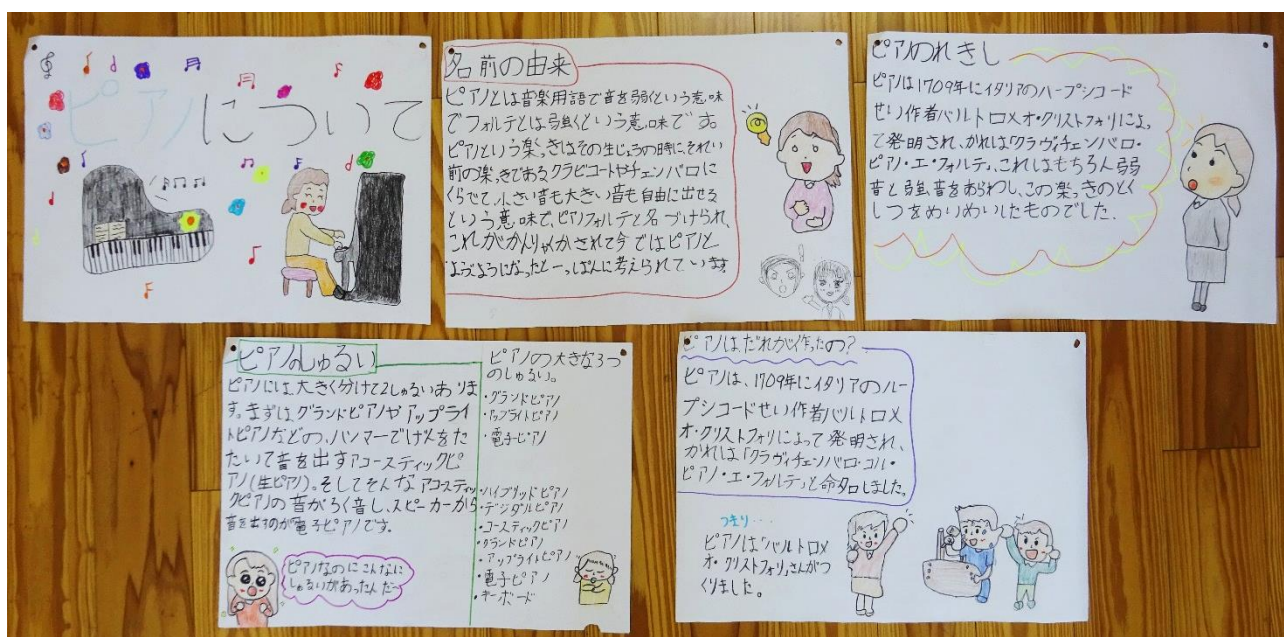 ピアノについて
名前の由来
ピアノとは音楽用語で音を弱くという意味
でフォルテとは強くという意味です。
ピアノという楽っきはその生じょうの時に、それい
前の楽っきであるクラビコートやチェンバロに
くらべて、小さい音も大きい音も自由に出せる
という意味で、ピアノフォルテと名づけられ、
これがかんりゃくかされて今ではピアノと
ようようになったと一っぱんに考えられています。
ピアノのれきし
ピアノは1709年にイタリアのハープシコード
せい作者バルトロメオ・クリストフォリによっ
て発明され、かれは「クラヴィチェンバロ・
ピアノ・エ・フォルテ」、これはもちろん弱
音と強音をあらわし、この楽っきのとく
しつをめいめいしたものでした。
ピアノのしゅるい
ピアノには、大きく分けて2しゅるいありま
す。まずは、グランドピアノやアップライ
トピアノなどの、ハンマーでげんをた
たいて音を出すアコースティックピ
アノ(生ピアノ)。そしてそんなアコスティッ
クピアノの音がろく音し、スピーカーから
音を出すのが電子ピアノです。
ピアノなのにこんなに
しゅるいがあったんだ〜
ピアノの大きな3つ
のしゅるい。
・グランドピアノ
・アップライトピアノ
・電子ピアノ
・ハイブリッドピアノ
・デジダルピアノ
・コースティックピアノ
・グランドピアノ
・アップライトピアノ
・電子ピアノ
・キーボード
ピアノは、だれがく作ったの?
ピアノは、1709年にイタリアのハー
プシコードせい作者バルトロメ
オ・クリストフォリによって発明され、
かれは「クラヴィチェンバロ・コル・
ピアノ・エ・フォルテ」と命名しました。
つまり…
ピアノは「バルトロメ
オ・クリストフォリ」さんがつ
くりました。